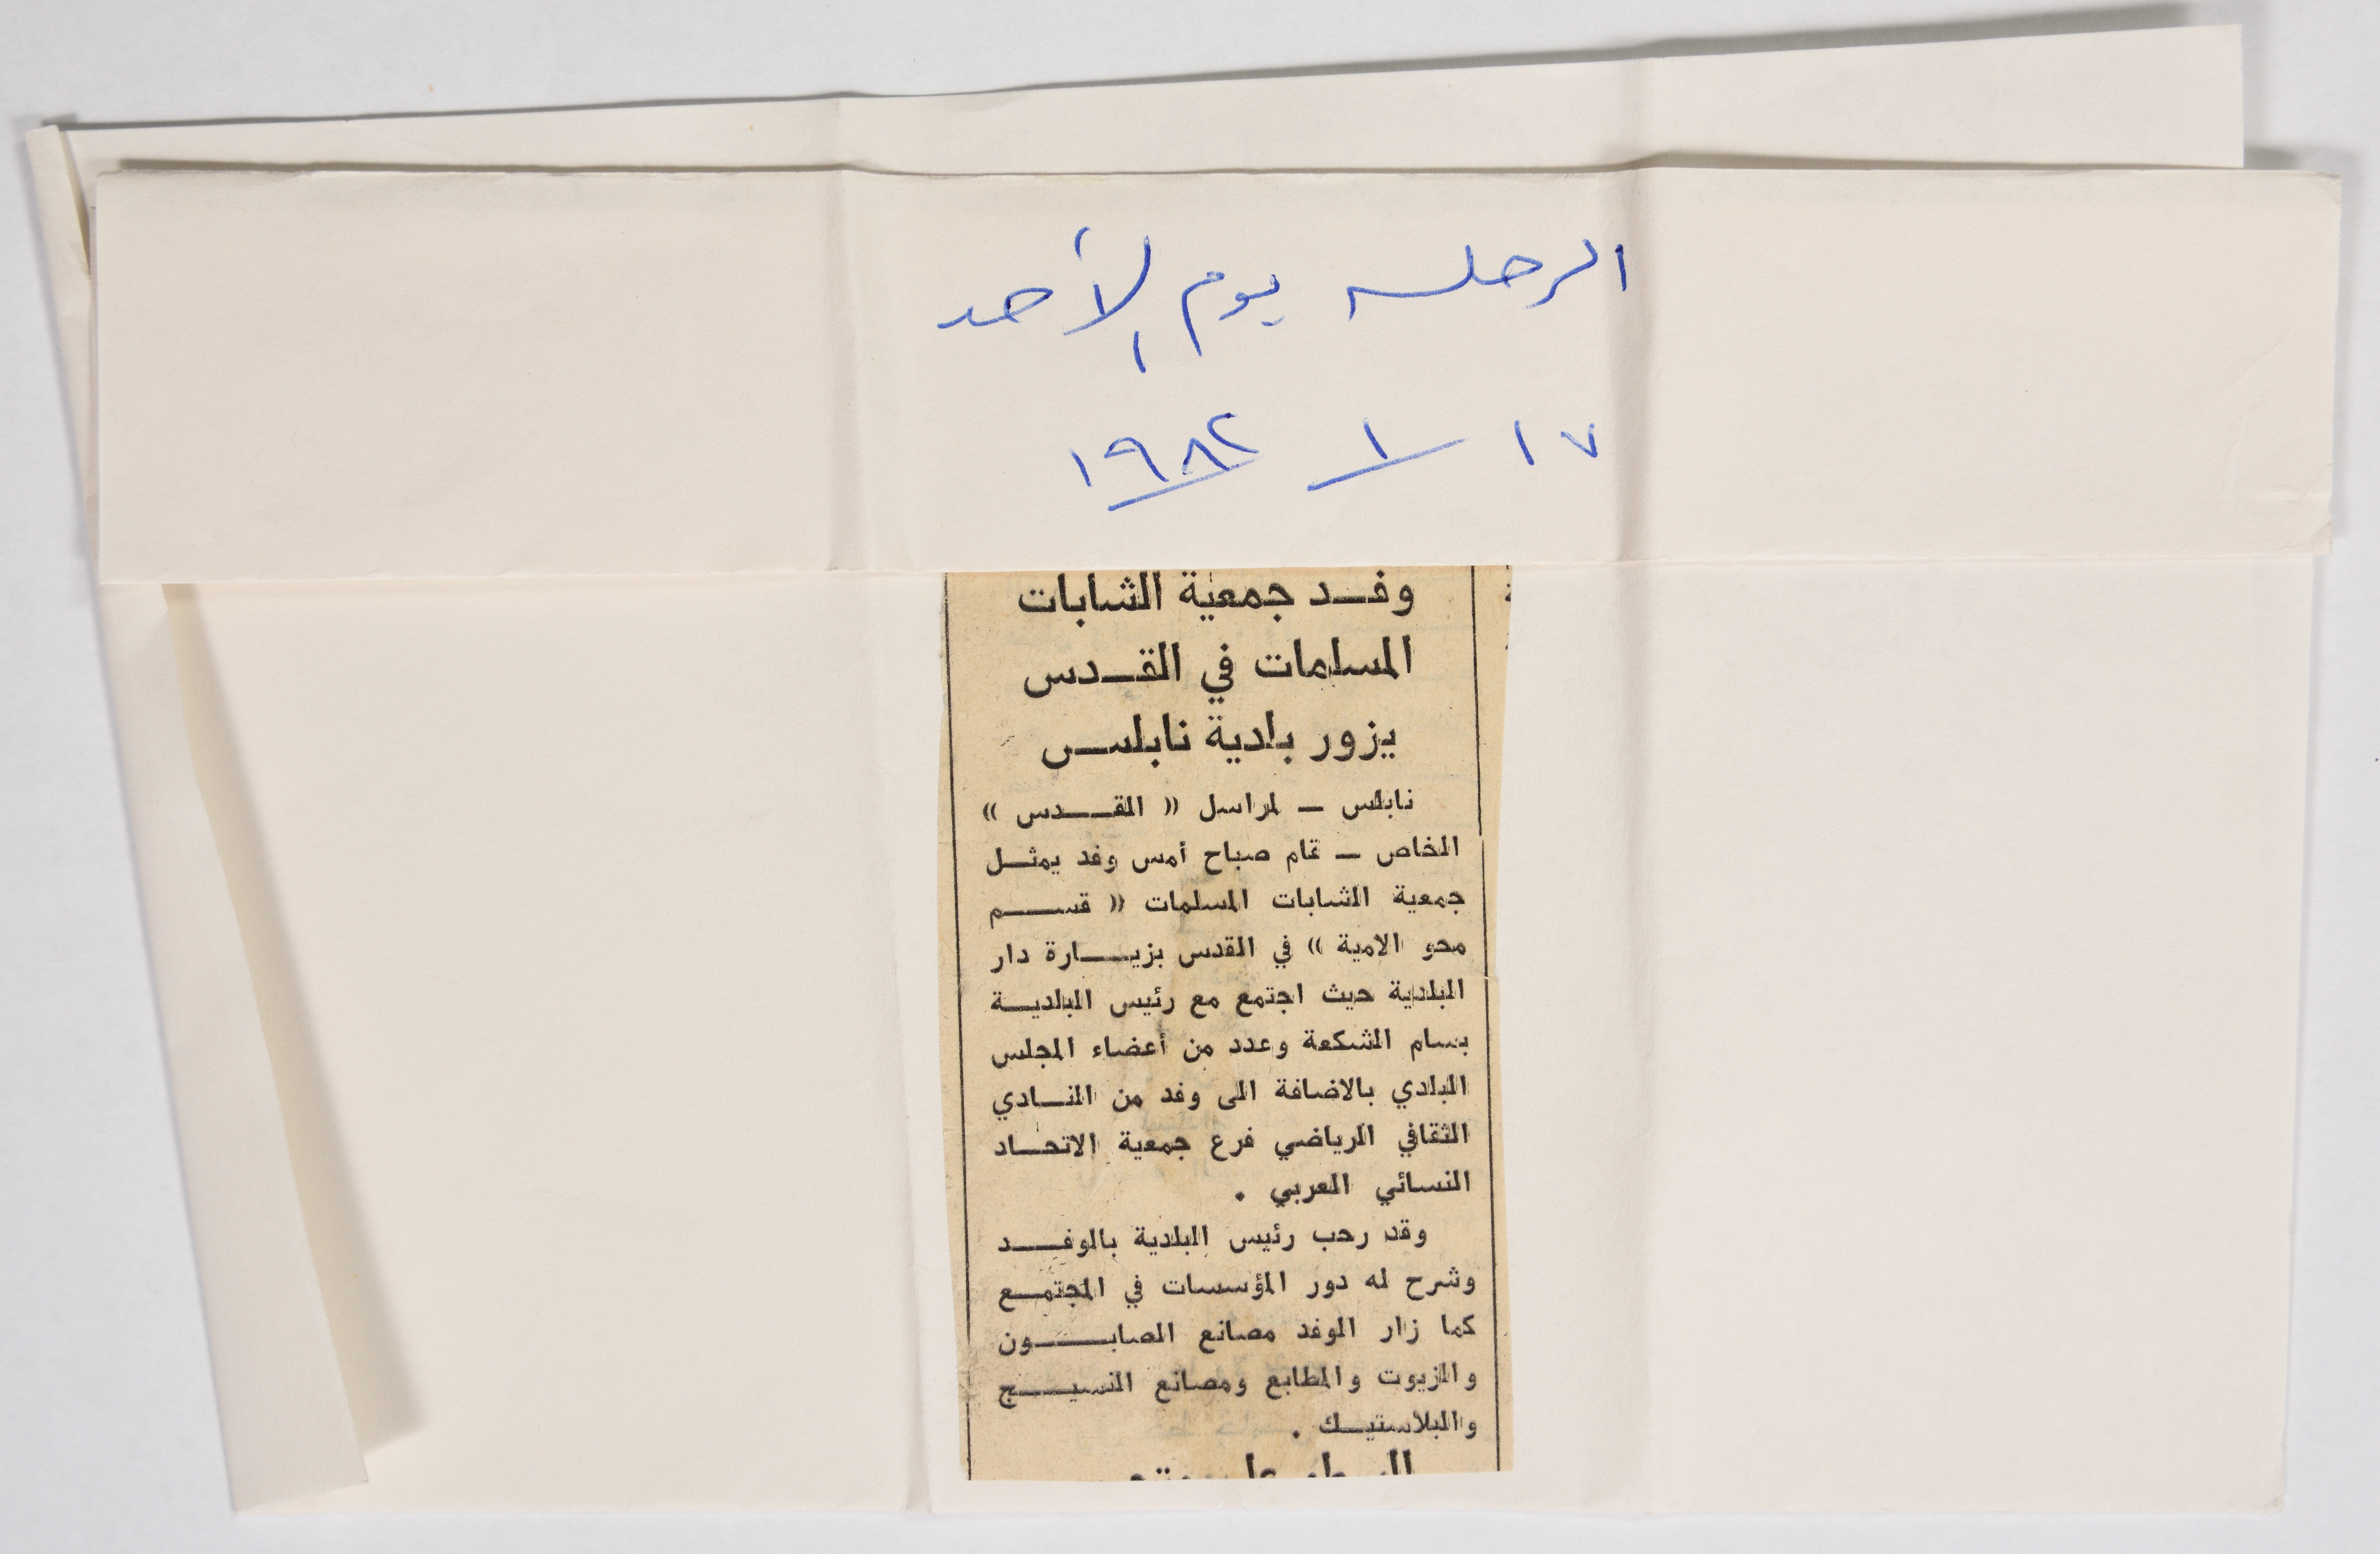 الرحلة يوم الأحد
١٧ / ١ / ١٩٨٢
وفد جمعية الشابات
المسلمات في القدس
يزور بلدية نابلس
نابلس – لمراسل « القدس »
الخاص – قام صباح أمس وفد يمثل
جمعية الشابات المسلمات « قسم
محو الامية » في القدس بزيارة دار
البلدية حيث اجتمع مع رئيس البلدية
بسام الشكعة وعدد من أعضاء المجلس
البلدي بالاضافة الى وفد من النادي
الثقافي الرياضي فرع جمعية الاتحاد
النسائي العربي .
وقد رحب رئيس البلدية بالوفد
وشرح له دور المؤسسات في المجتمع
كما زار الوفد مصانع الصابون
والزيوت والمطابع ومصانع النسيج
والبلاستيك .